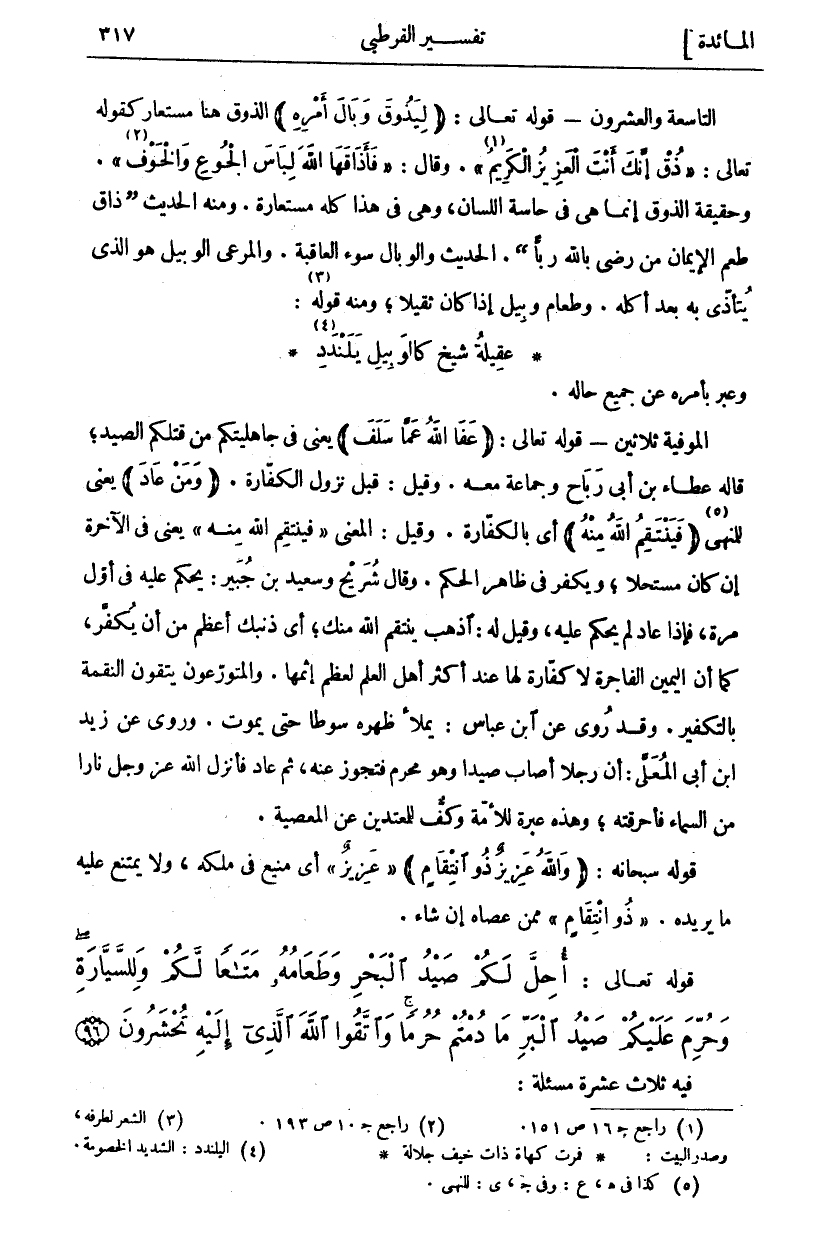 المائدة] تفسير القرطبي ٣١٧
التاسعة والعشرون — قوله تعالى : ﴿ لِيَذُوقَ وَبَالَ أَمْرِهِ ﴾ الذوق هنا مستعار كقوله
تعالى : « ذُقْ إِنَّكَ أَنْتَ الْعَزِيزُ الْكَرِيمُ(١) » . وقال : « فَأَذَاقَهَا اللهُ لِبَاسَ الْجُوعِ وَالْخَوْفِ(٢) » .
وحقيقة الذوق إنما هى فى حاسة اللسان، وهى فى هذا كله مستعارة . ومنه الحديث ”ذاق
طعم الإيمان من رضى بالله ربًّا“ . الحديث والوبال سوء العاقبة . والمرعى الوبيل هو الذى
يُتأذّى به بعد أكله . وطعام وبيل إذا كان ثقيلا ؛ ومنه قوله(٣) :
* عقِيلةُ شيخ كالوَبِيلِ يَلَنْدَدِ(٤) *
وعبر بأمره عن جميع حاله .
الموفية ثلاثين — قوله تعالى : ﴿ عَفَا اللهُ عَمَّا سَلَفَ ﴾ يعنى فى جاهليتكم من قتلكم الصيد ؛
قاله عطاء بن أبى رَبَاح وجماعة معه . وقيل : قبل نزول الكفّارة . ﴿ وَمَنْ عَادَ ﴾ يعنى
للنهى(٥) ﴿ فَيَنْتَقِمُ اللهُ مِنْهُ ﴾ أى بالكفّارة . وقيل : المعنى « فينتقم الله منه » يعنى فى الآخرة
إن كان مستحلا ؛ ويكفر فى ظاهر الحكم . وقال شُرَيْح وسعيد بن جُبَير : يحكم عليه فى أوّل
مرة، فإذا عاد لم يحكم عليه، وقيل له : ٱذهب ينتقم الله منك ؛ أى ذنبك أعظم من أن يُكفَّر،
كما أن اليمين الفاجرة لا كفّارة لها عند أكثر أهل العلم لعظم إثمها . والمتورّعون يتقون النقمة
بالتكفير . وقد رُوى عن ٱبن عباس : يملأ ظهره سوطا حتى يموت . وروى عن زيد
ابن أبى المُعَلَّى : أن رجلا أصاب صيدا وهو محرم فتجوز عنه، ثم عاد فأنزل الله عز وجل نارا
من السماء فأحرقته ؛ وهذه عبرة للأمّة وكفٌّ للمعتدين عن المعصية .
قوله سبحانه : ﴿ وَاللهُ عَزِيزٌ ذُو ٱنْتِقَامٍ ﴾ « عَزِيزٌ » أى منيع فى ملكه ، ولا يمتنع عليه
ما يريده . « ذُو انْتِقَامٍ » ممن عصاه إن شاء .
قوله تعالى : أُحِلَّ لَكُمْ صَيْدُ ٱلْبَحْرِ وَطَعَامُهُۥ مَتَٰعًا لَّكُمْ وَلِلسَّيَّارَةِ ۖ
وَحُرِّمَ عَلَيْكُمْ صَيْدُ ٱلْبَرِّ مَا دُمْتُمْ حُرُمًا ۗ وَٱتَّقُوا ٱللَّهَ ٱلَّذِىٓ إِلَيْهِ تُحْشَرُونَ ﴿٩٦﴾
فيه ثلاث عشرة مسئلة :
(١) راجع جـ ١٦ ص ١٥١ . (٢) راجع جـ ١٠ ص ١٩٣ . (٣) الشعر لطرفه ،
وصدر البيت : * فمرت كهاة ذات خيف جلالة * (٤) اليلندد : الشديد الخصومة .
(٥) كذا فى هـ ، ع : وفى جـ ، ى : للنهى .